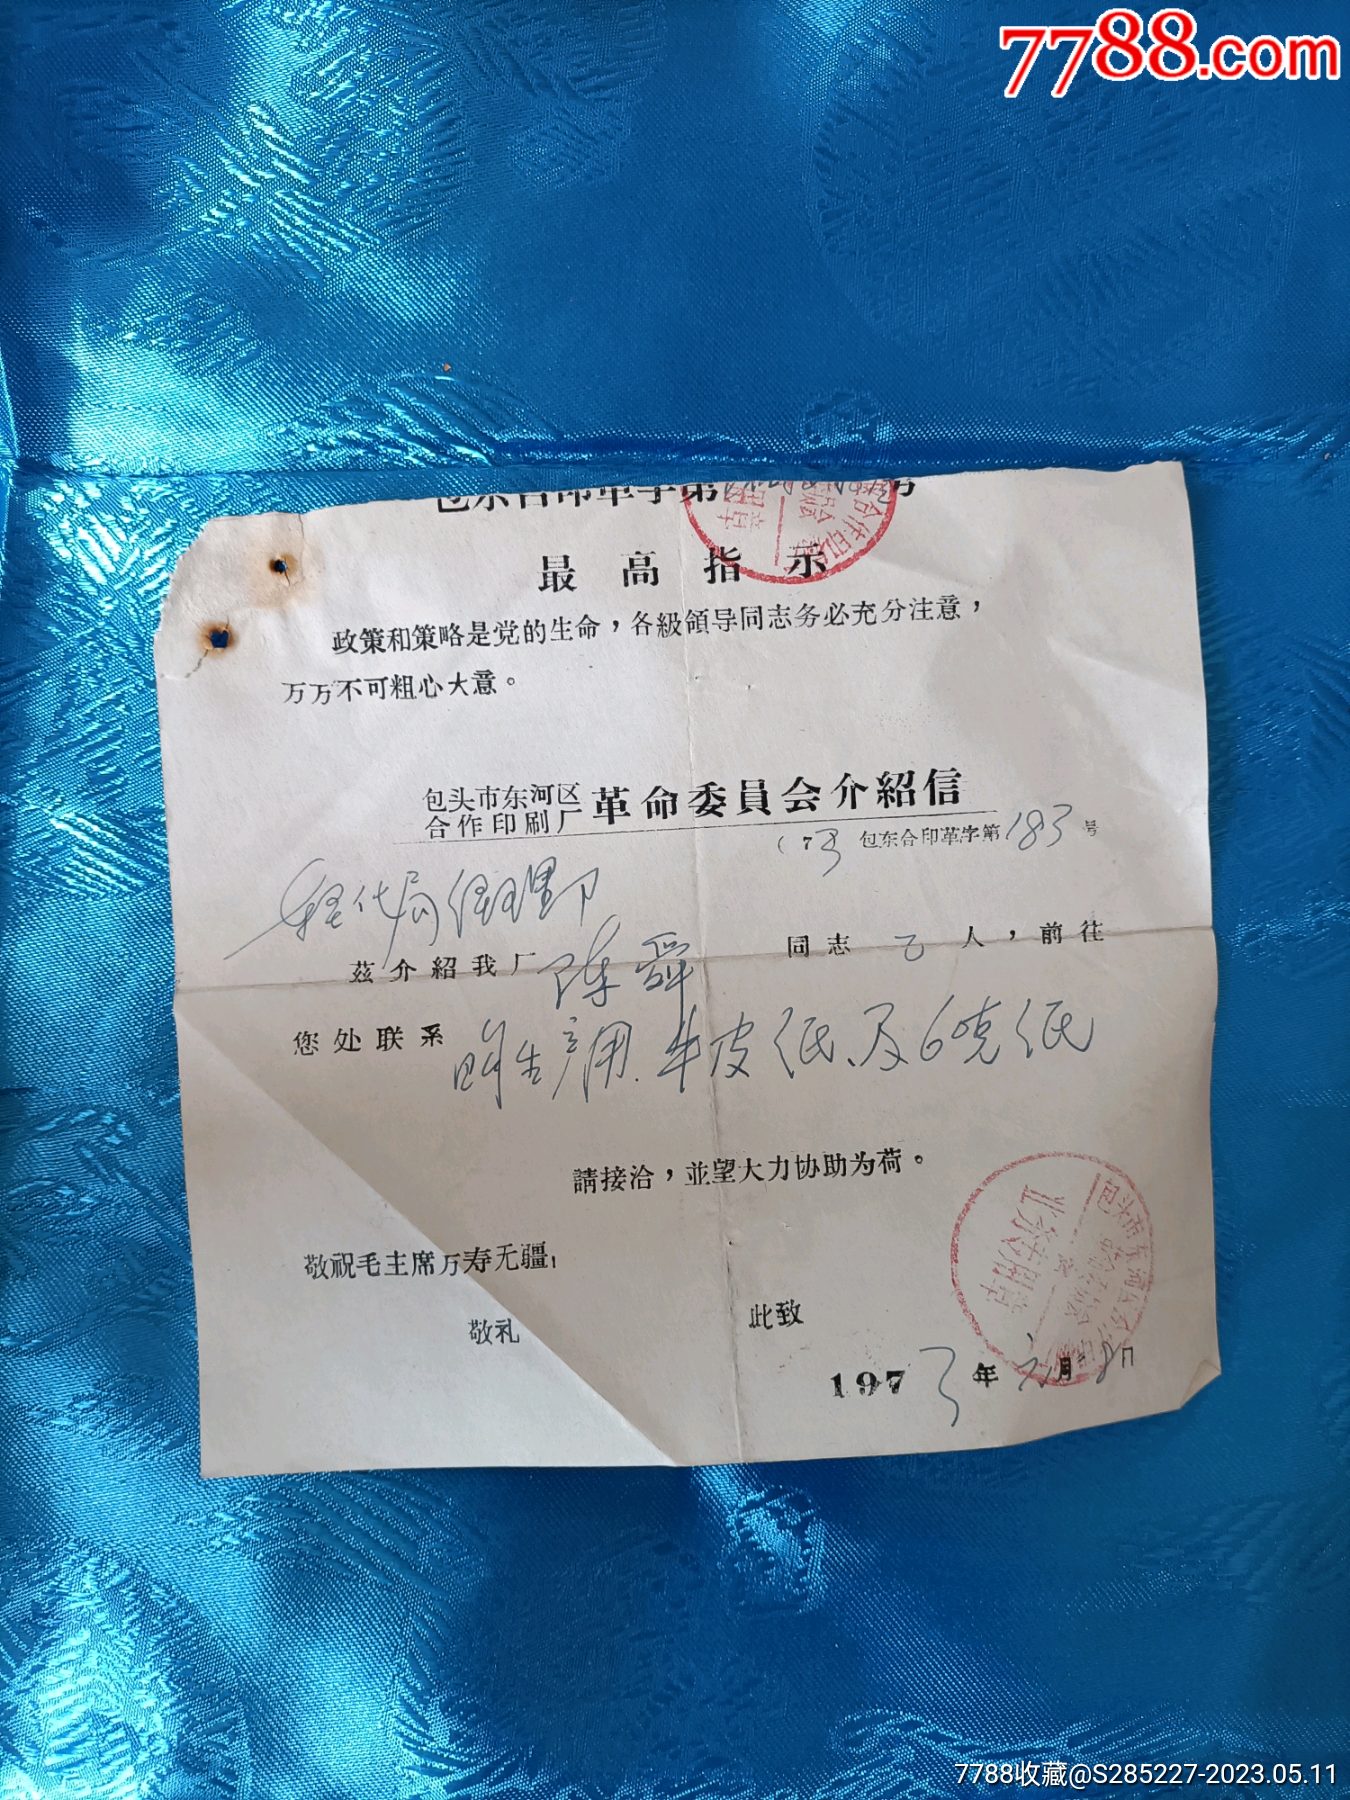 7788.com
包东合印革字第 号
最高指示
政策和策略是党的生命，各級領导同志务必充分注意，
万万不可粗心大意。
包头市东河区
合作印刷厂 革命委員会介紹信
（73 包东合印革字第183号
茲介紹我厂 陈舜 同志 乙 人，前往
您处联系 购生产用.牛皮纸、及60克纸
請接洽，並望大力协助为荷。
敬祝毛主席万寿无疆！
此致
敬礼
1973年 月 日
7788收藏@S285227-2023.05.11